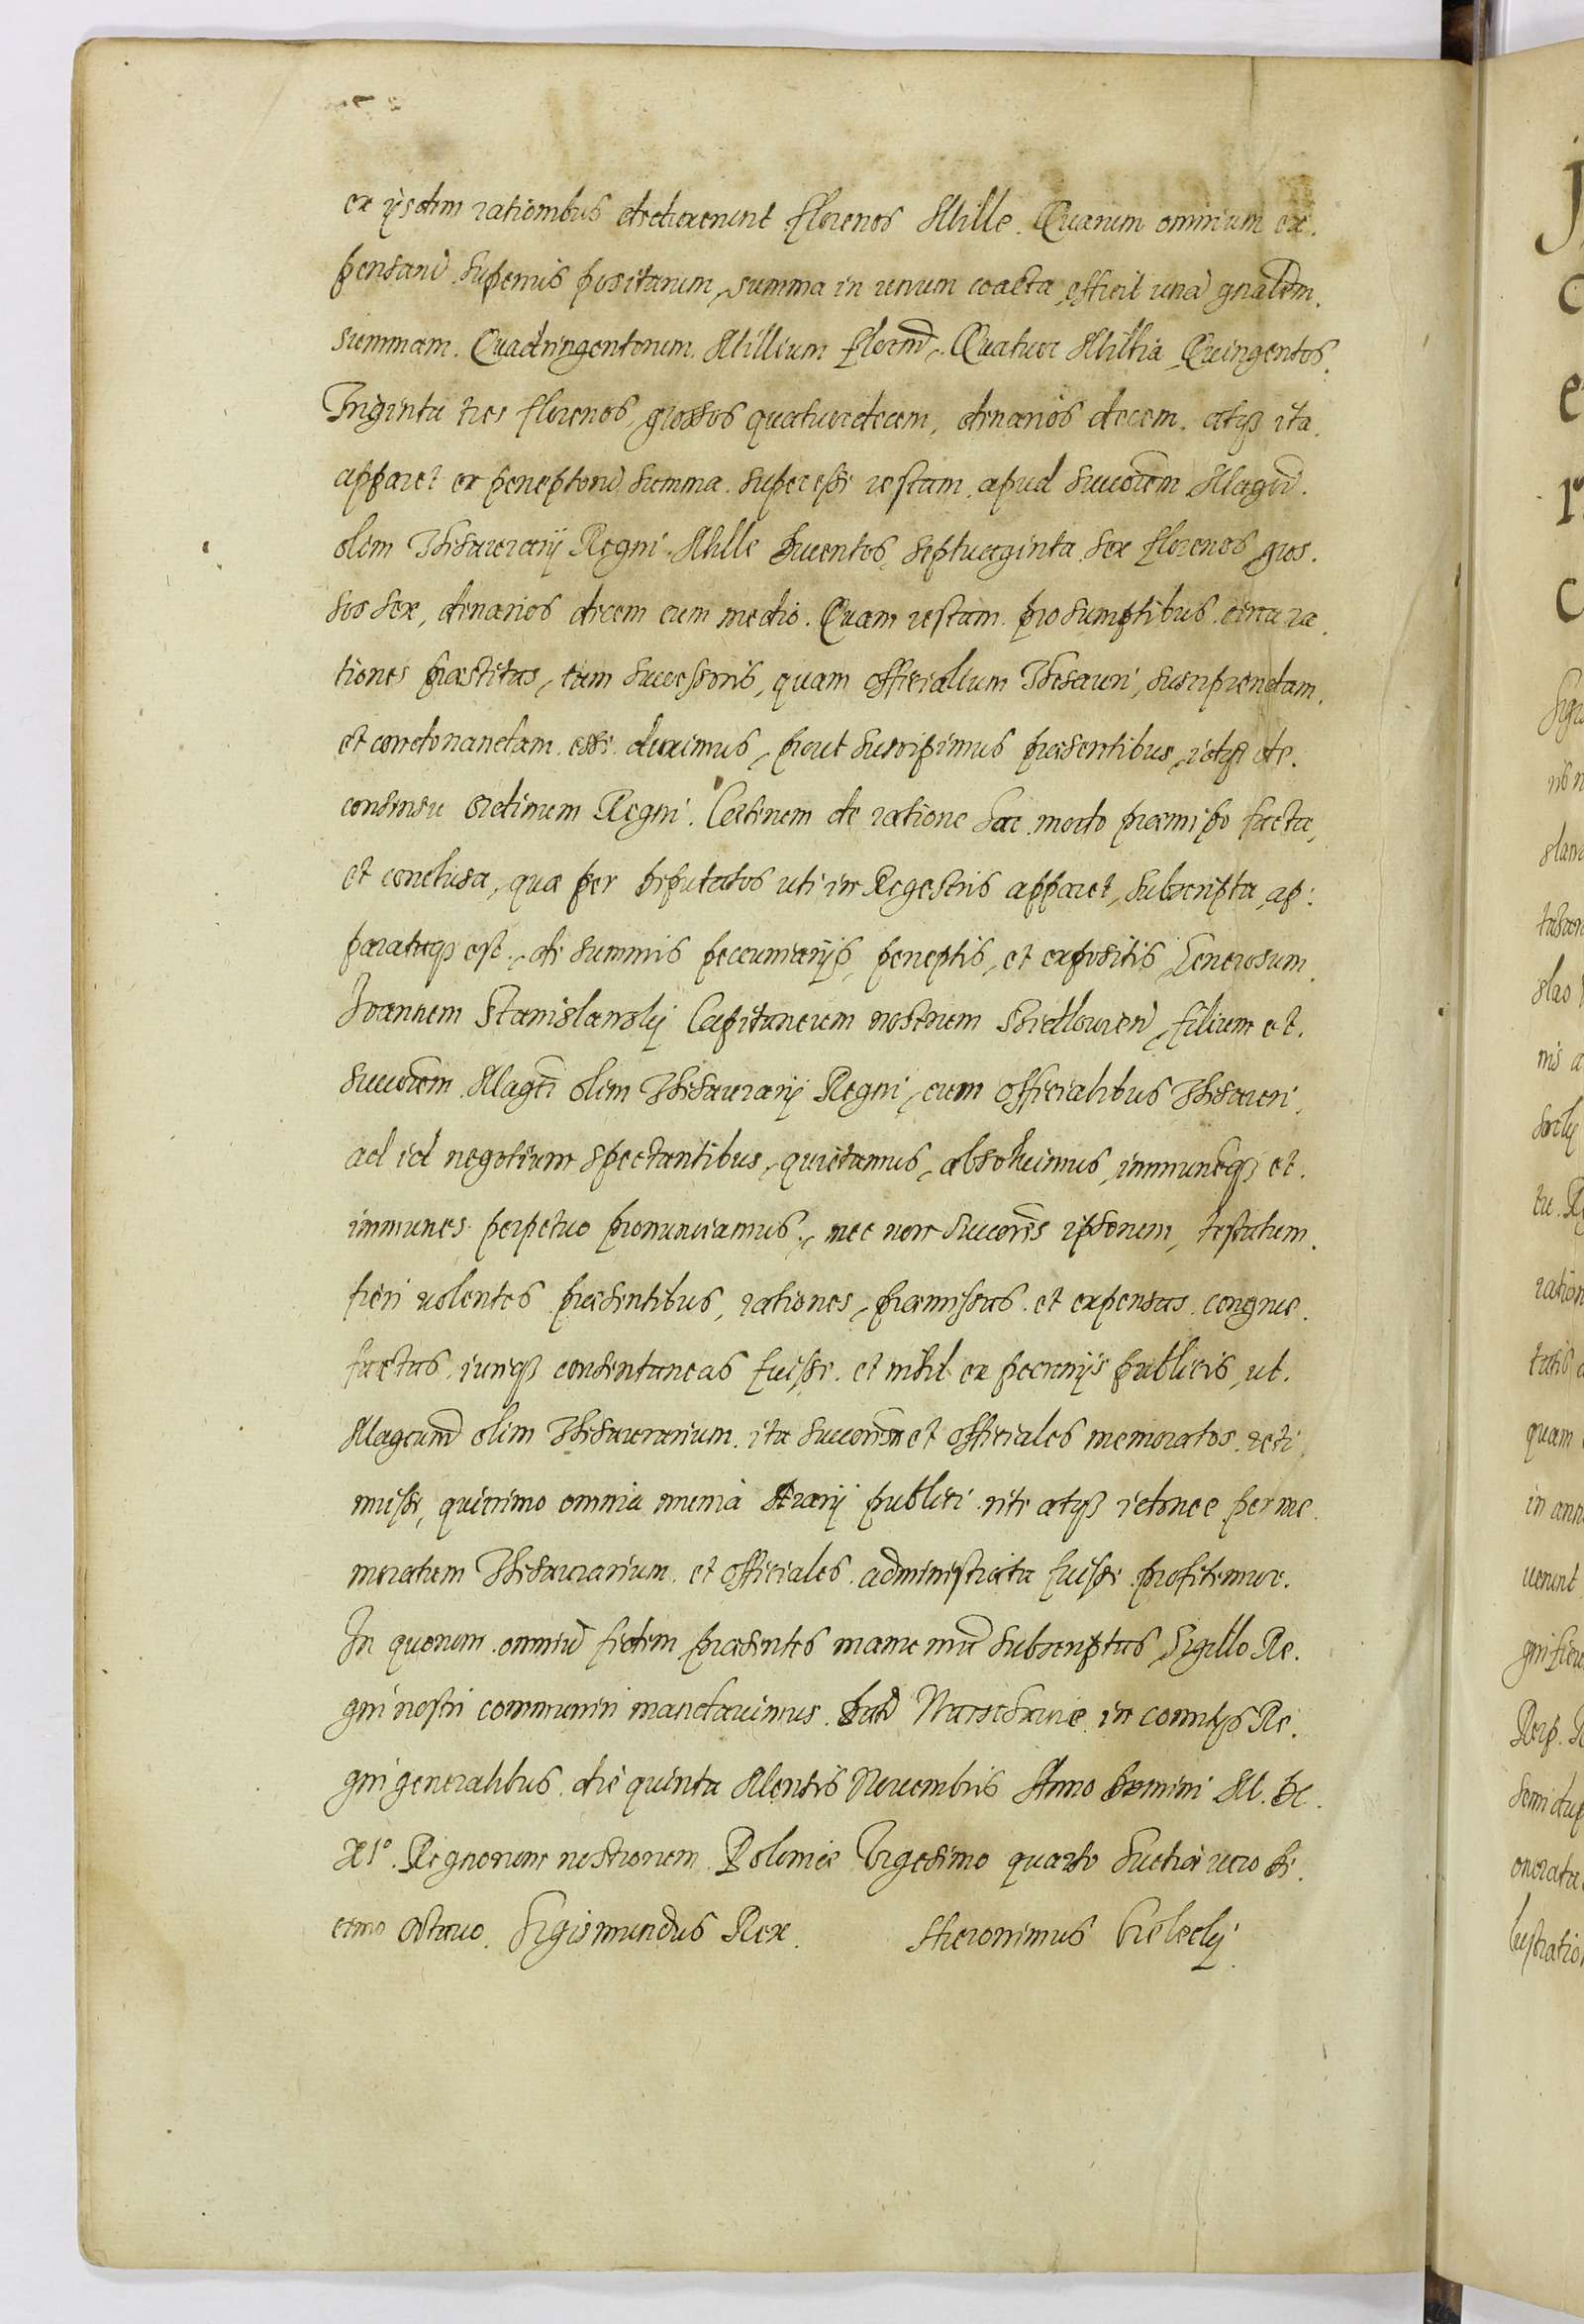 ex ijsdem rationibus deduxerunt florenos Mille. Quarum omnium ex.
pensarũ superius positarum, summa in unum coacta, efficit unã gnãlem.
summam. Quadringentorum Millium florenõ. Quatuor Millia, Quingentos.
Triginta tres florenos, grossos quatuordecem, denarios decem. atqȝ ita.
apparet ex perceptorũ summa. superesse restam, apud succorem Magcĩ.
olim Thesaurarij Regni. Mille Ducentos, septuaginta sex florenos gros.
sos sex, denarios decem cum medio. Quam restam pro sumptibus circa ra.
tiones præstitas, tam successoris, quam officialium Thesauri, suscipiendam,
et condonandam esse duximus, prout suscipimus præsentibus, idqȝ de.
consensu ordinum Regni. Ceterum de ratione hac modo præmisso facta,
et conclusa, quæ per Deputatos uti in Regestris apparet, subscripta, ap:
paratuqȝ est. de summis pecuniarijs, perceptis, et expositis Generosum
Ioannem Stanislawsky Capitaneum nostrum, filium et.
succorem Magcĩ olim Thesaurarij Regni, cum officialibus Thesauri,
ad id negotium spectantibus, quietamus, absoluimus, immunemqȝ et.
immunes perpetuo pronunciamus, nec non succores ipsorum, testatum.
fieri uolentes præsentibus, rationes, præmissas et expensas congrue.
factas iurıqȝ consentaneas fuisse. et nihil ex pecunijs publicis, ut.
Magcum olim Thesaurarium ita succorem et officiales memoratos reti
nuisse, quinimo omnia munia Ærarij publici rite atqȝ idonee per me.
moratum Thesaurarium et officiales administrata fuisse profitemur.
In quorum omniũ fidem præsentes manu nrã subscriptas Sigillo Re.
gni nostri communiri mandauimus. Datũ Warschauiæ in comitijs Re.
gni generalibus die quinta Mensis Nouembris Anno Domini M. DC.
XIº. Regnorum nostrorum Poloniæ Vigesimo quarto Suetiæ uero De.
cimo octauo. Sigismundus Rex. Hieronimus